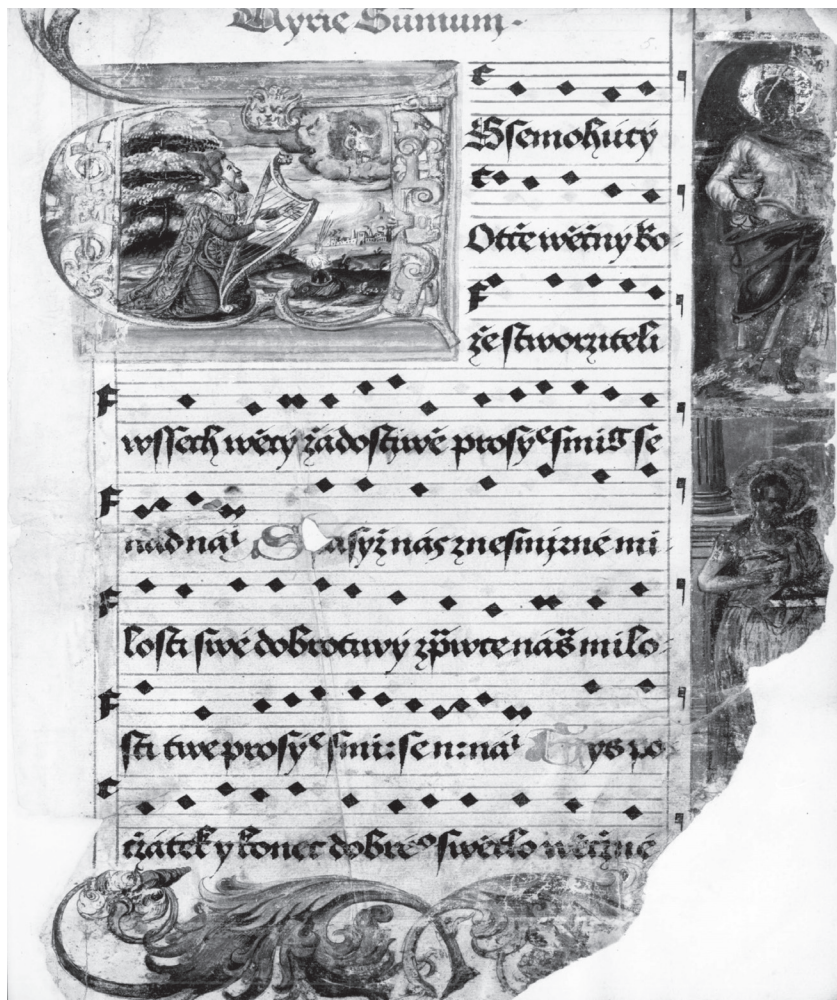 Kyrie Summum
Wssemohúcý
Otče wěčný bo-
že stworziteli
wssech wěcý žádostiwě prosýᵉ smiᵍ se
nád náˡ Spasyž nás z nesmjrné mi-
losti swé dobrotiwý zpᵃwce náš milo-
sti twe prosýᵉ smi: se n: náˡ Gys po-
čátek y konec dobréº swětlo wěčné